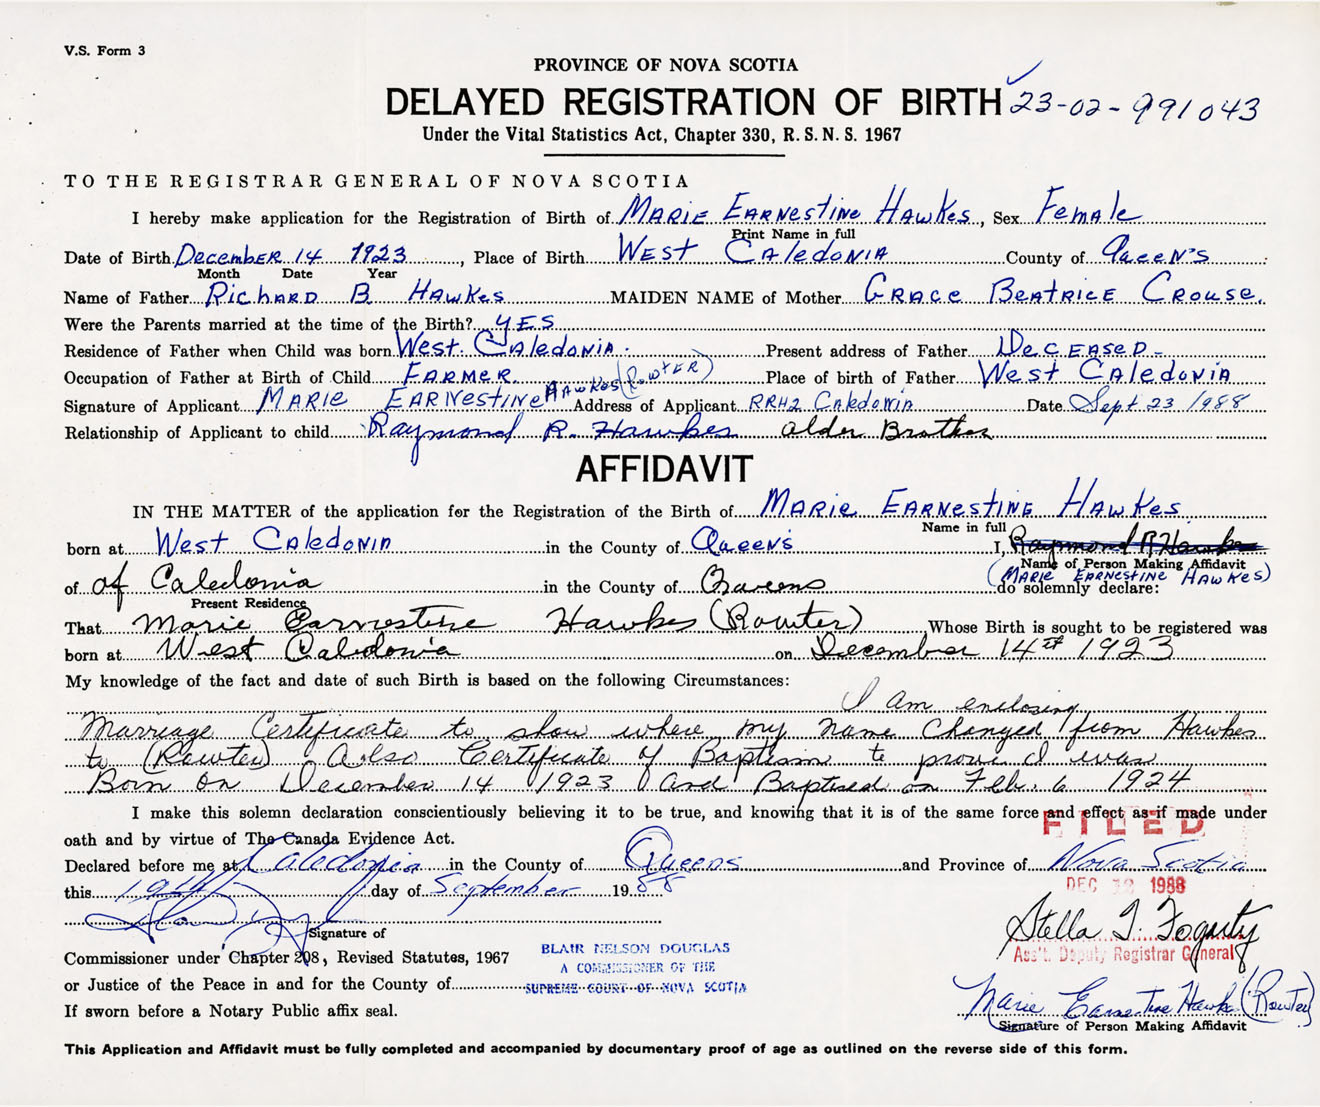 V.S. Form 3
PROVINCE OF NOVA SCOTIA
DELAYED REGISTRATION OF BIRTH 23-02-991043
Under the Vital Statistics Act, Chapter 330, R. S. N. S. 1967
TO THE REGISTRAR GENERAL OF NOVA SCOTIA
I hereby make application for the Registration of Birth of MARIE EARNESTINE HAWKES, Sex Female
Print Name in full
Date of Birth December 14 1923, Place of Birth WEST CALEDONIA County of Queen's
Month Date Year
Name of Father RICHARD B. HAWKES MAIDEN NAME of Mother GRACE BEATRICE CROUSE.
Were the Parents married at the time of the Birth? YES
Residence of Father when Child was born West Caledonia. Present address of Father DECEASED-
Occupation of Father at Birth of Child FARMER. Place of birth of Father West Caledonia
Signature of Applicant MARIE EARNESTINE HAWKES (ROWTER) Address of Applicant RR#2 Caledonia Date Sept 23/1988
Relationship of Applicant to child Raymond R. Hawkes older Brother
AFFIDAVIT
IN THE MATTER of the application for the Registration of the Birth of MARIE EARNESTINE HAWKES
Name in full
born at West Caledonia in the County of Queens I, Raymond R. Hawkes
Name of Person Making Affidavit
(MARIE EARNESTINE HAWKES)
of of Caledonia in the County of Queens do solemnly declare:
Present Residence
That Marie Earnestine Hawkes (Rowter) Whose Birth is sought to be registered was
born at West Caledonia on December 14th 1923
My knowledge of the fact and date of such Birth is based on the following Circumstances:
I am enclosing
Marriage Certificate to show where my name changed from Hawkes
to (Rowter) Also Certificate of Baptism to prove I was
Born on December 14 1923 and Baptised on Feb. 6 1924
I make this solemn declaration conscientiously believing it to be true, and knowing that it is of the same force and effect as if made under
FILED
oath and by virtue of The Canada Evidence Act.
Declared before me at Caledonia in the County of Queens and Province of Nova Scotia
this 19th day of September 1988
DEC 1988
Stella T. Fogarty
Ass't. Deputy Registrar General
Signature of
Commissioner under Chapter 208, Revised Statutes, 1967
BLAIR NELSON DOUGLAS
A COMMISSIONER OF THE
SUPREME COURT OF NOVA SCOTIA
or Justice of the Peace in and for the County of
Marie Earnestine Hawkes (Rowter)
Signature of Person Making Affidavit
If sworn before a Notary Public affix seal.
This Application and Affidavit must be fully completed and accompanied by documentary proof of age as outlined on the reverse side of this form.